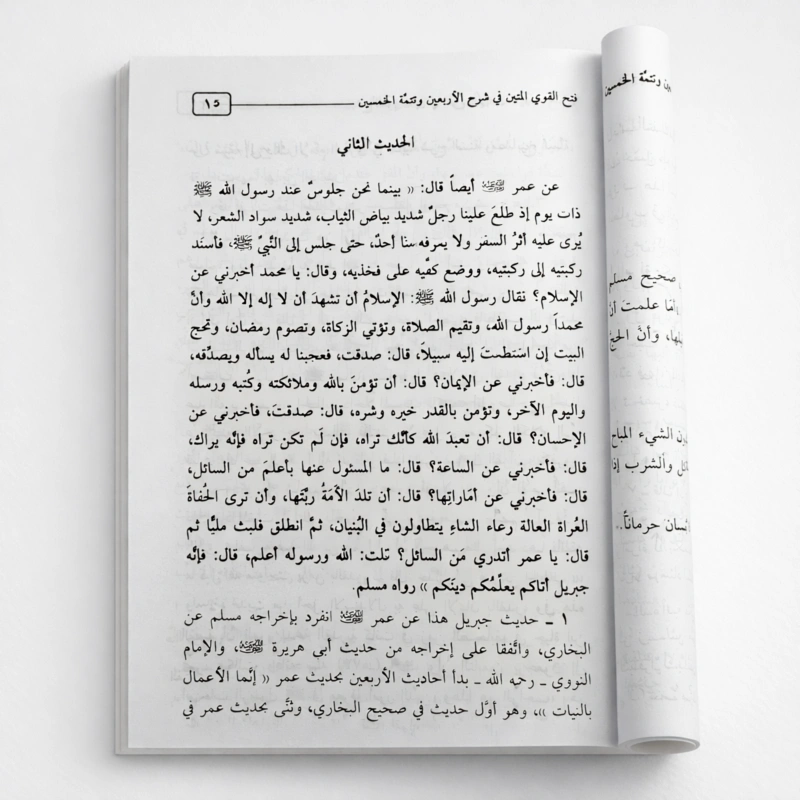 فتح القوي المتين في شرح الأربعين وتتمَّة الخمسين ١٥
الحديث الثاني
عن عمر ﵁ أيضاً قال: «بينما نحن جلوسٌ عند رسول الله ﷺ
ذات يوم إذ طلعَ علينا رجلٌ شديد بياض الثياب، شديد سواد الشعر، لا
يُرى عليه أثرُ السفر ولا يعرفه منا أحدٌ، حتى جلس إلى النَّبيِّ ﷺ، فأسند
ركبتيه إلى ركبتيه، ووضع كفَّيه على فخذيه، وقال: يا محمد أخبرني عن
الإسلام؟ فقال رسول الله ﷺ: الإسلامُ أن تشهدَ أن لا إله إلا الله وأنَّ
محمداً رسول الله، وتقيم الصلاة، وتؤتي الزكاة، وتصوم رمضان، وتحج
البيت إن استطعتَ إليه سبيلاً، قال: صدقت، فعجبنا له يسأله ويصدِّقه،
قال: فأخبرني عن الإيمان؟ قال: أن تؤمنَ بالله وملائكته وكُتبه ورسله
واليوم الآخر، وتؤمن بالقدر خيره وشره، قال: صدقتَ، فأخبرني عن
الإحسان؟ قال: أن تعبدَ الله كأنَّك تراه، فإن لَم تكن تراه فإنَّه يراك،
قال: فأخبرني عن الساعة؟ قال: ما المسئول عنها بأعلمَ من السائل،
قال: فأخبرني عن أمَاراتِها؟ قال: أن تلدَ الأَمَةُ ربَّتها، وأن ترى الحُفاةَ
العُراة العالة رعاء الشاءِ يتطاولون في البُنيان، ثمَّ انطلق فلبث مليًّا ثم
قال: يا عمر أتدري مَن السائل؟ قلت: الله ورسوله أعلم، قال: فإنَّه
جبريل أتاكم يعلِّمُكم دينَكم» رواه مسلم.
١ ـ حديث جبريل هذا عن عمر ﵁ انفرد بإخراجه مسلم عن
البخاري، واتَّفقا على إخراجه من حديث أبي هريرة ﵁، والإمام
النووي ـ رحمه الله ـ بدأ أحاديث الأربعين بحديث عمر «إنَّما الأعمال
بالنيات»، وهو أوَّل حديث في صحيح البخاري، وثنَّى بحديث عمر في
وتتمَّة الخمسين
صحيح مسلم
علمتَ أن
وأنَّ الحج
الشيء المباح
والشرب إذا
حرماناً..